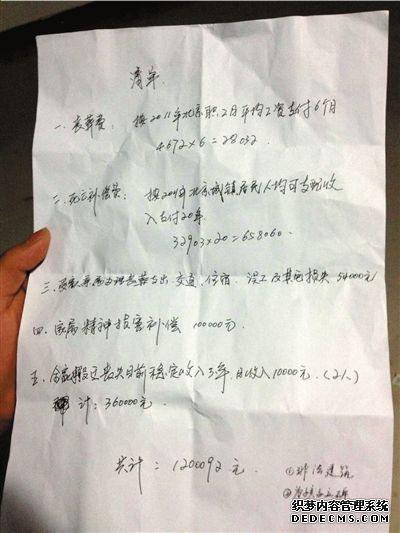 清单
一、丧葬费：按2011年北京职工月平均工资支付6个月
4672×6=28032
二、死亡补偿费：按2011年北京城镇居民人均可支配收
入支付20年
32903×20=658060.
三、受害亲属办理丧葬支出、交通、住宿、误工及其他损失 54000元
四、家属精神损害补偿 100000元.
五、拆迁损失目前稳定收入3年，月收入10000元.（2人）
计：360000元.
共计：1200092元.
①非法建筑
②
织梦内容管理系统
DEDECMS.COM